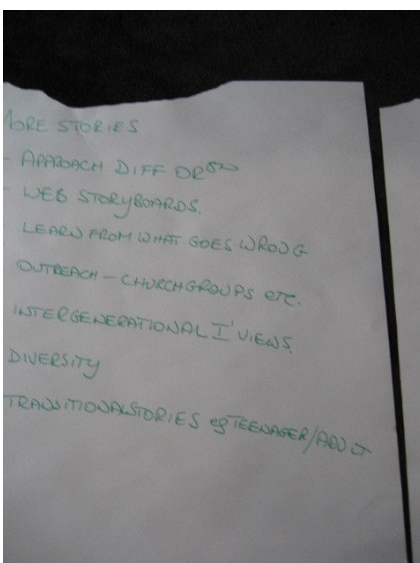 MORE STORIES
- APPROACH DIFF ORGN
- WEB STORYBOARDS.
LEARN FROM WHAT GOES WRONG
OUTREACH - CHURCHGROUPS ETC.
INTERGENERATIONAL I'VIEWS.
DIVERSITY
TRANSITIONAL STORIES eg TEENAGER/ADULT